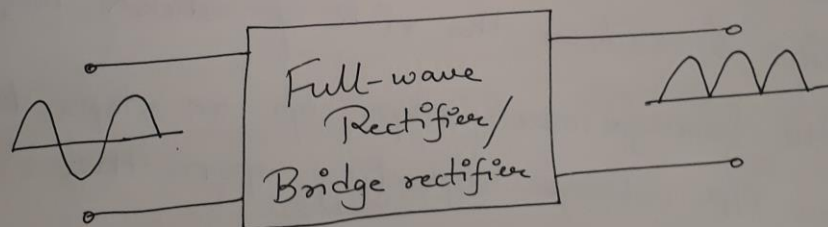 Full-wave
Rectifier/
Bridge rectifier